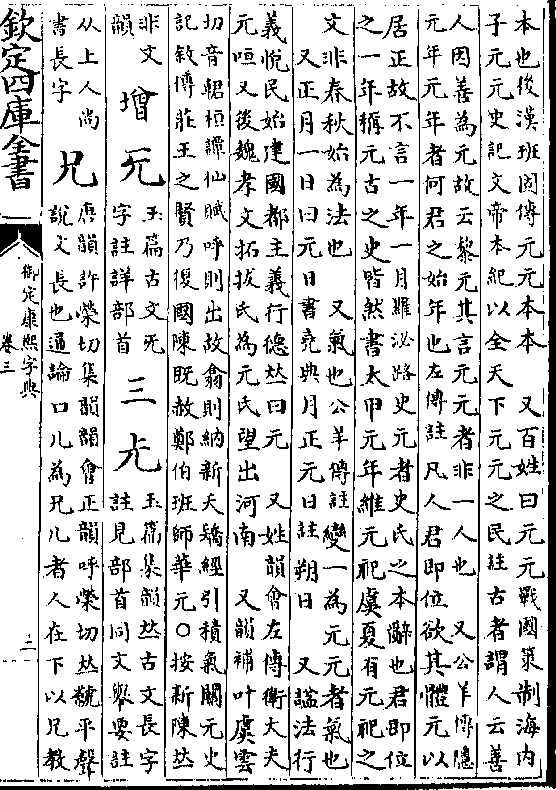 本也後漢班固傳元元本本　又百姓曰元元戰國策制海内
子元元史記文帝本紀以全天下元元之民註古者謂人云善
人因善為元故云黎元其言元元者非一人也　又公羊傳隱
元年元年者何君之始年也左傳註凡人君即位欲其體元以
居正故不言一年一月羅泌路史元者史氏之本辭也君即位
之一年稱元古之史皆然書太甲元年維元祀虞夏有元祀之
文非春秋始為法也　又氣也公羊傳註變一為元元者氣也
又正月一日曰元日書堯典月正元日註朔日　又謚法行
義悦民始建國都主義行德𠀤曰元　又姓韻會左傳衛大夫
元咺又後魏孝文拓拔氏為元氏望出河南　又韻補叶虞雲
切音輑桓譚仙賦呼則出故翕則納新夭矯經引積氣關元史
記敘傳莊王之賢乃復國陳既赦鄭伯班師華元○按新陳𠀤
非文韻
增
兂
玉篇古文旡字註詳部首
三
𠑷
玉篇集韻𠀤古文長字註見部首同文舉要註
从上人尚書長字
兄
唐韻許榮切集韻韻會正韻呼榮切𠀤虩平聲
說文長也通論口儿為兄儿者人在下以兄教
欽定四庫全書
御定康熙字典
卷三
二